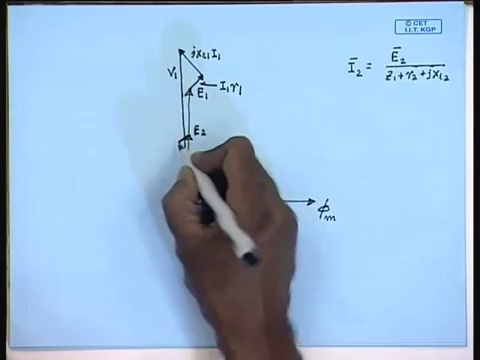 © CET
I.I.T. KGP
jx_{l1} I_1
V_1
I_1 r_1
E_1
E_2
ϕ_m
Ī_2 = Ē_2 / (z_1 + r_2 + jx_{l2})